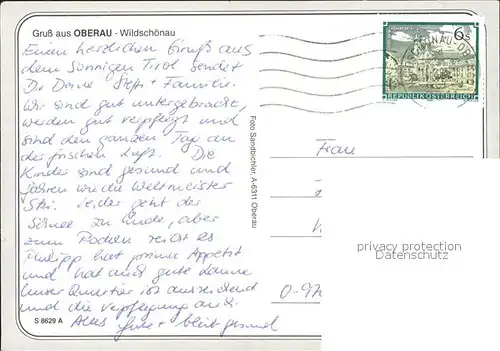 Gruß aus OBERAU - Wildschönau
Einen herzlichen Gruß aus
dem Sonnigen Tirol sendet
Dir Deine Steffi + Familie.
Wir sind gut untergebracht,
werden gut verpflegt und
sind den ganzen Tag an
der frischen Luft. Die
Kinder sind gesund und
fahren wie die Weltmeister
Ski. Leider geht der
Schnee zu Ende, aber
zum Rodeln reicht es
Philipp hat prima Appetit
und hat auch gute Laune
Unser Quartier ist ausreichend
und die Verpflegung auch.
Alles Gute + bleibt gesund
S 8629 A
Foto Sandbichler, A-6311 Oberau
6 S
REPUBLIK ÖSTERREICH
Frau
privacy protection
Datenschutz